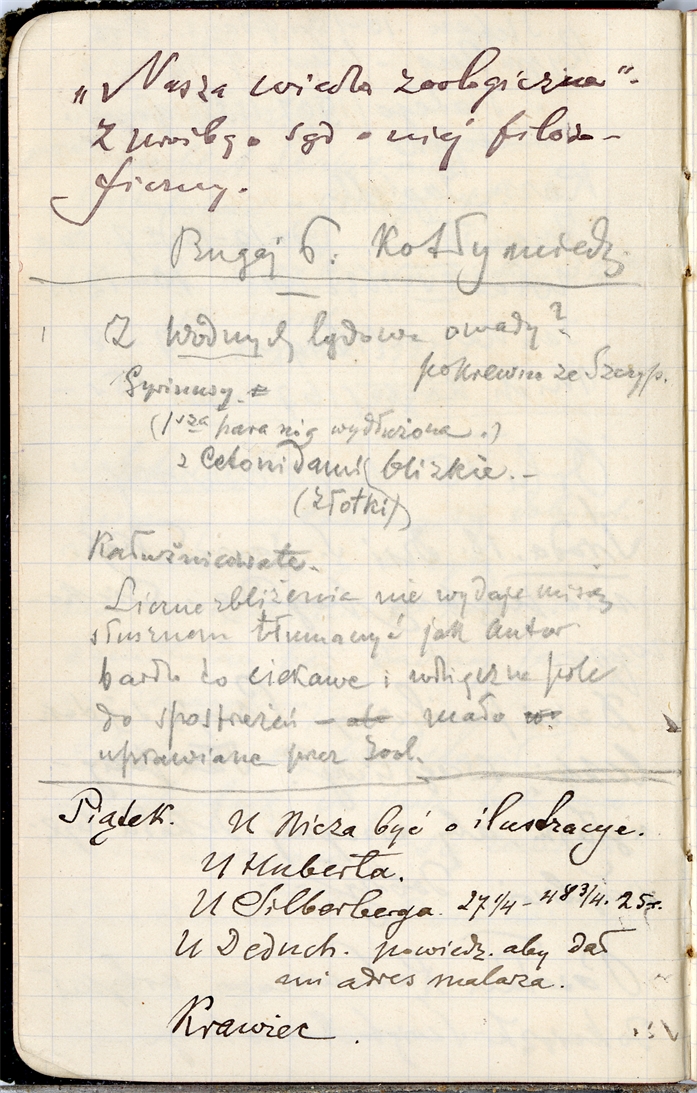 „Nasza wiedza zoologiczna".
Z sąd o niej filozo-
ficzny.
Bugaj 6. Kotły miedz.
Z wodnych lądowe owady?
pokrewne ze Szczyp.
Gyrinusy.
(1sza para nóg wydłużona.)
z Cetonidami blizkie. –
(złotki)
Kałużnicowate.
Liczne zbliżenia nie wydaje mi się
słusznem tłumaczyć jak Autor
bardzo to ciekawe i wdzięczne pole
do spostrzeżeń – ale mało
uprawiane przez Zool.
Piątek. U Nicza być o ilustracye.
U Huberta.
U Silberberga 27 1/4 – 48 3/4. 25r.
U Deduch. powiedz. aby dał
mi adres malarza.
Krawiec.